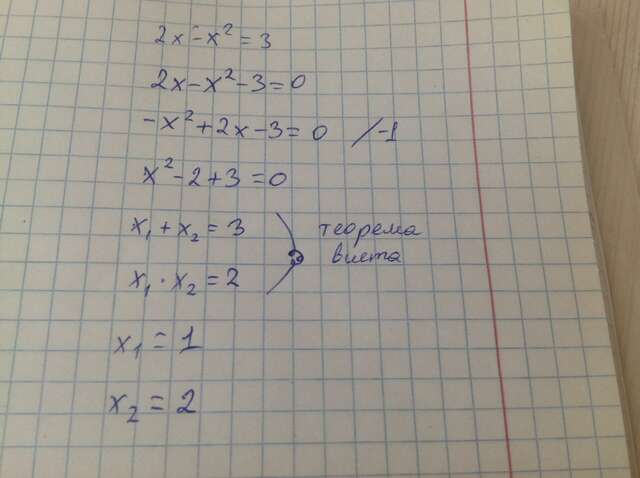 2x - x² = 3
2x - x² - 3 = 0
-x² + 2x - 3 = 0 /-1
x² - 2 + 3 = 0
x₁ + x₂ = 3
x₁ · x₂ = 2
теорема
виета
x₁ = 1
x₂ = 2